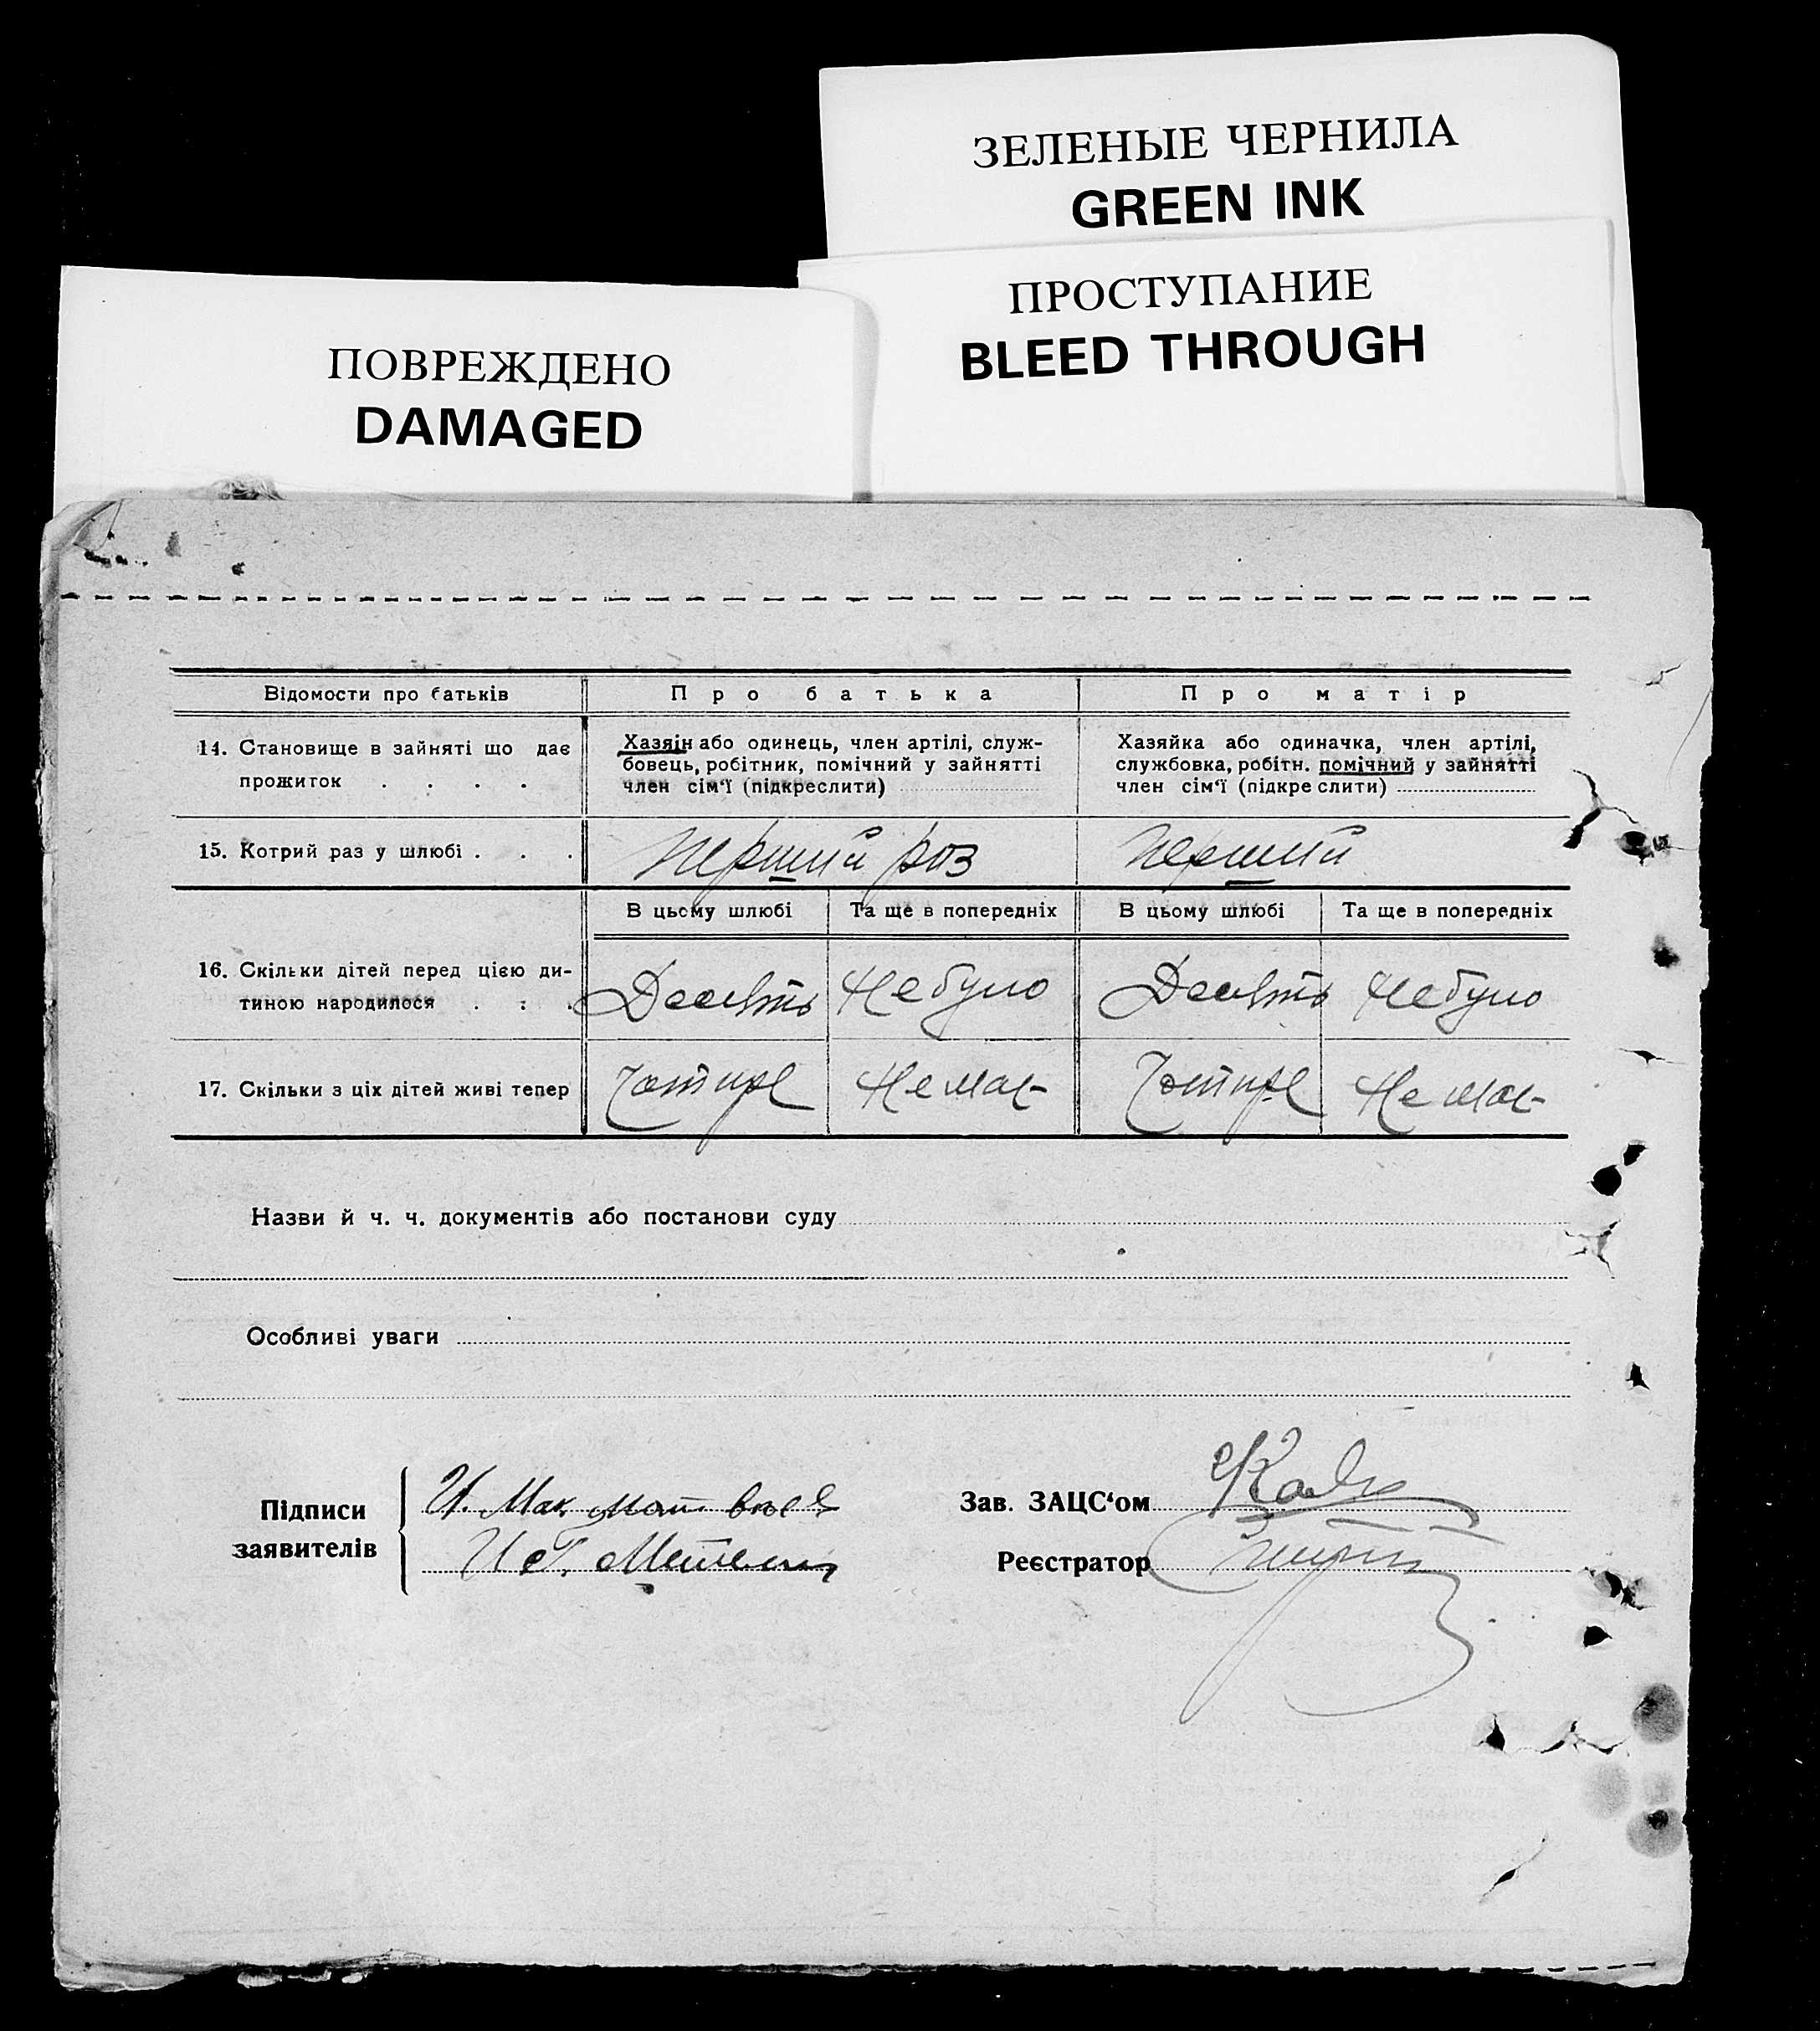 ЗЕЛЕНЫЕ ЧЕРНИЛА
GREEN INK
ПРОСТУПАНИЕ
BLEED THROUGH
ПОВРЕЖДЕНО
DAMAGED
Відомости про батьків
Про батька
Про матір
14. Становище в зайняті що дає
прожиток . . . .
Хазяїн або одинець, член артілі, служ-
бовець, робітник, помічний у зайнятті
член сім'ї (підкреслити)
Хазяйка або одиначка, член артілі,
службовка, робітн. помічний у зайнятті
член сім'ї (підкреслити)
15. Котрий раз у шлюбі . . .
перший роз
перший
В цьому шлюбі
Та ще в попередніх
В цьому шлюбі
Та ще в попередніх
16. Скільки дітей перед цією ди-
тиною народилося . . .
Десять
Небуло
Десять
Небуло
17. Скільки з ціх дітей живі тепер
Чотире
Немає
Чотире
Немає
Назви й ч. ч. документів або постанови суду
Особливі уваги
Підписи
заявителів
И.
Зав. ЗАЦС'ом
Реєстратор